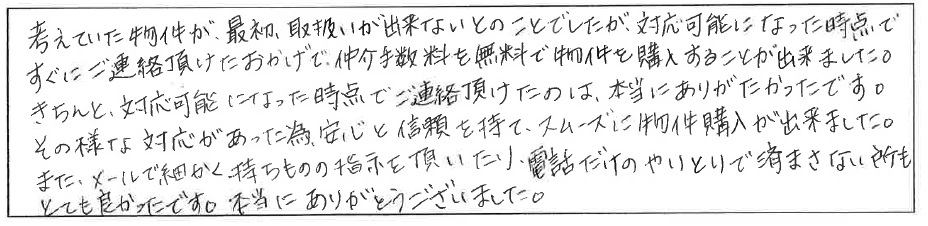 考えていた物件が、最初、取扱いが出来ないとのことでしたが、対応可能になった時点で
すぐにご連絡頂けたおかげで、仲介手数料を無料で物件を購入することが出来ました。
きちんと、対応可能になった時点でご連絡頂けたのは、本当にありがたかったです。
その様な対応があった為、安心と信頼を持て、スムーズに物件購入が出来ました。
また、メールで細かく持ちものの指示を頂いたり、電話だけのやりとりで済まさない所も
とても良かったです。本当にありがとうございました。